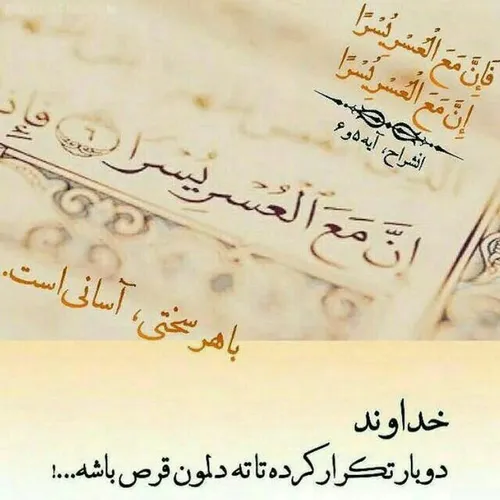 فَإِنَّ مَعَ الْعُسْرِ يُسْرًا
إِنَّ مَعَ الْعُسْرِ يُسْرًا
انشراح، آیه ۵ و ۶
إِنَّ مَعَ الْعُسْرِ يُسْرًا ۶
با هر سختی، آسانی است.
خداوند
دوبار تکرار کرده تا ته دلمون قرص باشه...!